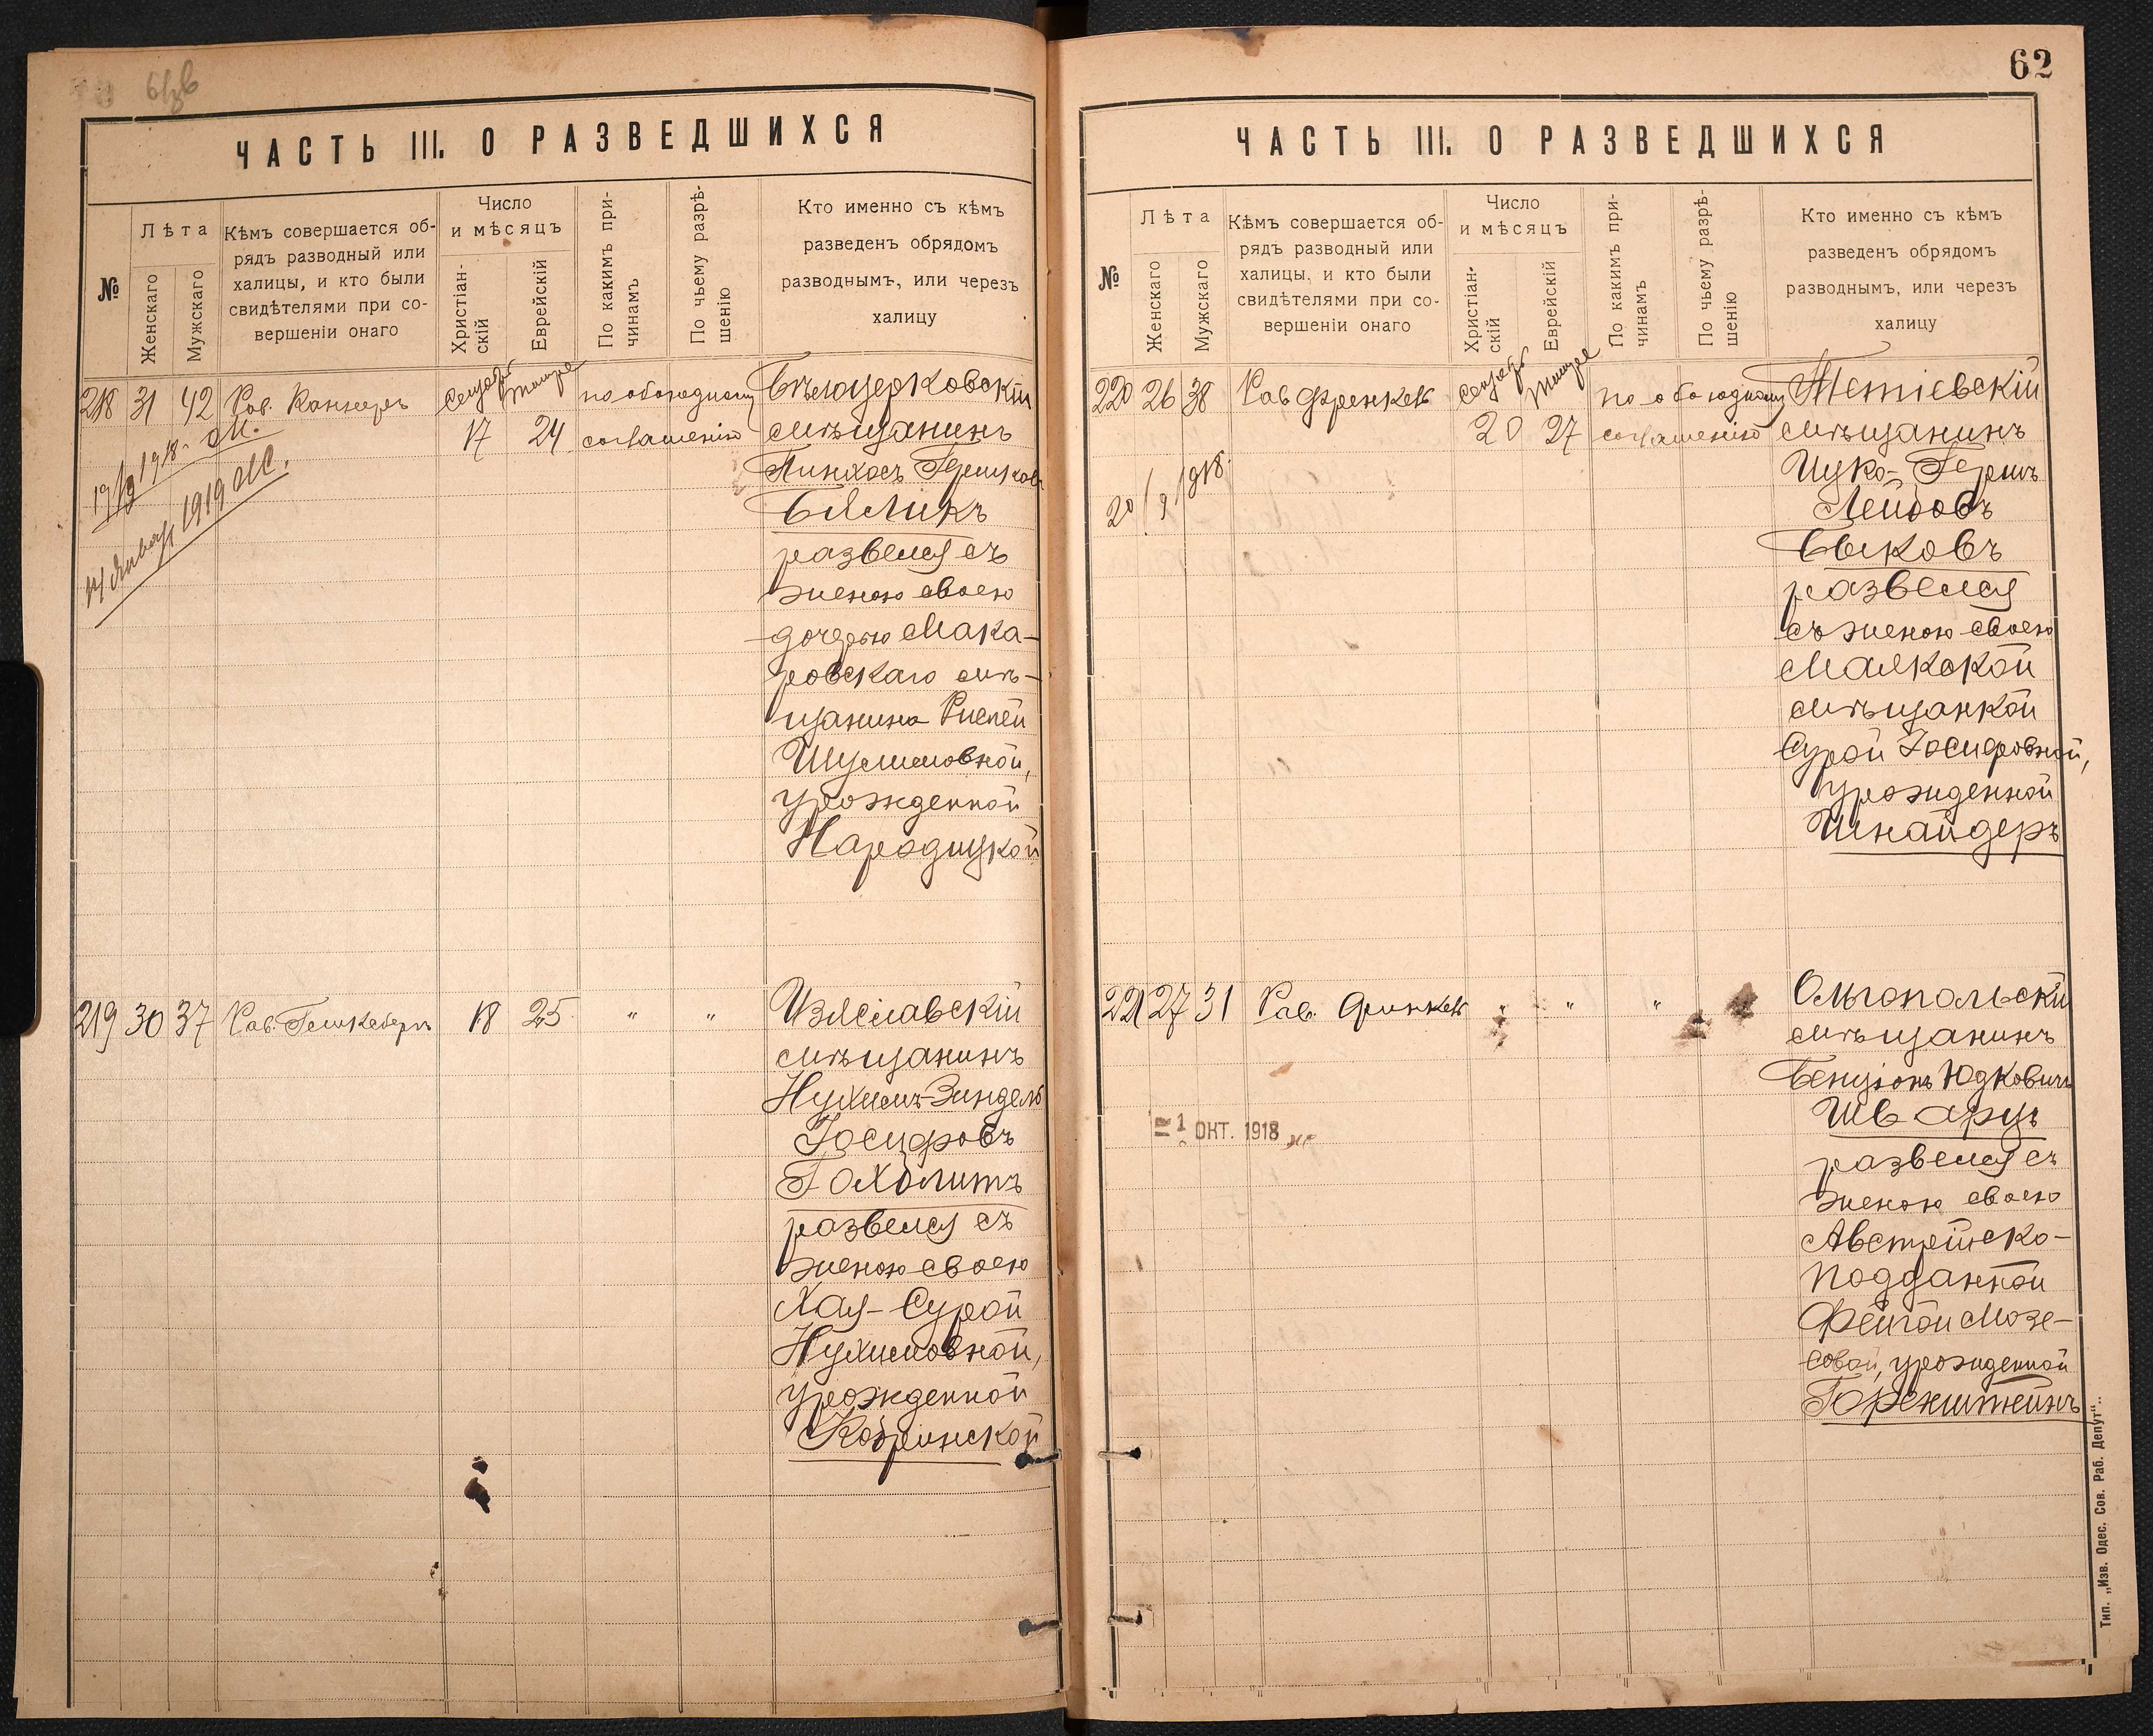 ЧАСТЬ III. О РАЗВЕДШИХСЯ
№
Лѣта
Женскаго
Мужскаго
Кѣмъ совершается об-
рядъ разводный или
халицы, и кто были
свидѣтелями при со-
вершеніи онаго
Число
и мѣсяцъ
Христіан-
скій
Еврейскій
По какимъ при-
чинамъ
По чьему разрѣ-
шенію
Кто именно съ кѣмъ
разведенъ обрядомъ
разводнымъ, или черезъ
халицу
218 31 42 Рав. 17 24 по обоюдному соглашенію
Бѣлоцерковскій
мѣщанинъ
Пинхосъ Гершковъ
Бяликъ
развелся съ
женою своею
дочерью Мака-
ровскаго мѣ-
щанина Рислей
Шулимовной,
урожденной
Народицкой
19/9 1918.
14 Января 1919
219 30 37 Рав. 18 25 " "
Изяславскій
мѣщанинъ
Нухимъ-Зиндель
Іосифовъ
Гохблитъ
развелся съ
женою своею
Хая-Сурой
Нухимовной,
урожденной
Кобринской
62
ЧАСТЬ III. О РАЗВЕДШИХСЯ
№
Лѣта
Женскаго
Мужскаго
Кѣмъ совершается об-
рядъ разводный или
халицы, и кто были
свидѣтелями при со-
вершеніи онаго
Число
и мѣсяцъ
Христіан-
скій
Еврейскій
По какимъ при-
чинамъ
По чьему разрѣ-
шенію
Кто именно съ кѣмъ
разведенъ обрядомъ
разводнымъ, или черезъ
халицу
220 26 38 Рав Френкель 20 27 по обоюдному соглашенію
Тетіевскій
мѣщанинъ
Ицко-Гершъ
Лейбовъ
Быковъ
развелся
съ женою своею
Маякской
мѣщанкой
Сурой Іосифовной,
урожденной
Шнайдеръ
20/9/918.
221 27 31 Рав. Френкель " " "
Ольгопольскій
мѣщанинъ
Бенціонъ Юдковичъ
Шварцъ
развелся съ
женою своею
Австрійско-
подданной
Фейгой Мозе-
совой, урожденной
Горенштейнъ
1 ОКТ. 1918
Тип. „Изв. Одес. Сов. Раб. Депут“.